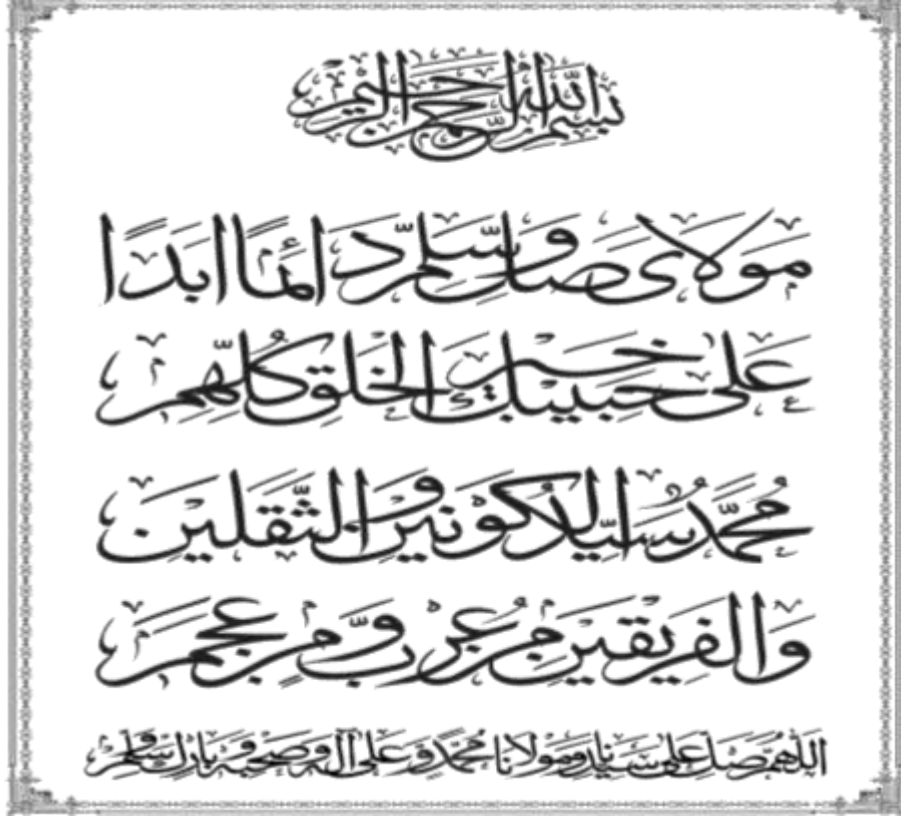 بسم الله الرحمن الرحيم
مولاى صل وسلم دائما ابدا
على حبيبك خير الخلق كلهم
محمد سيد الكونين والثقلين
والفريقين من عرب ومن عجم
اللهم صل على سيدنا ومولانا محمد وعلى آله وصحبه وبارك وسلم